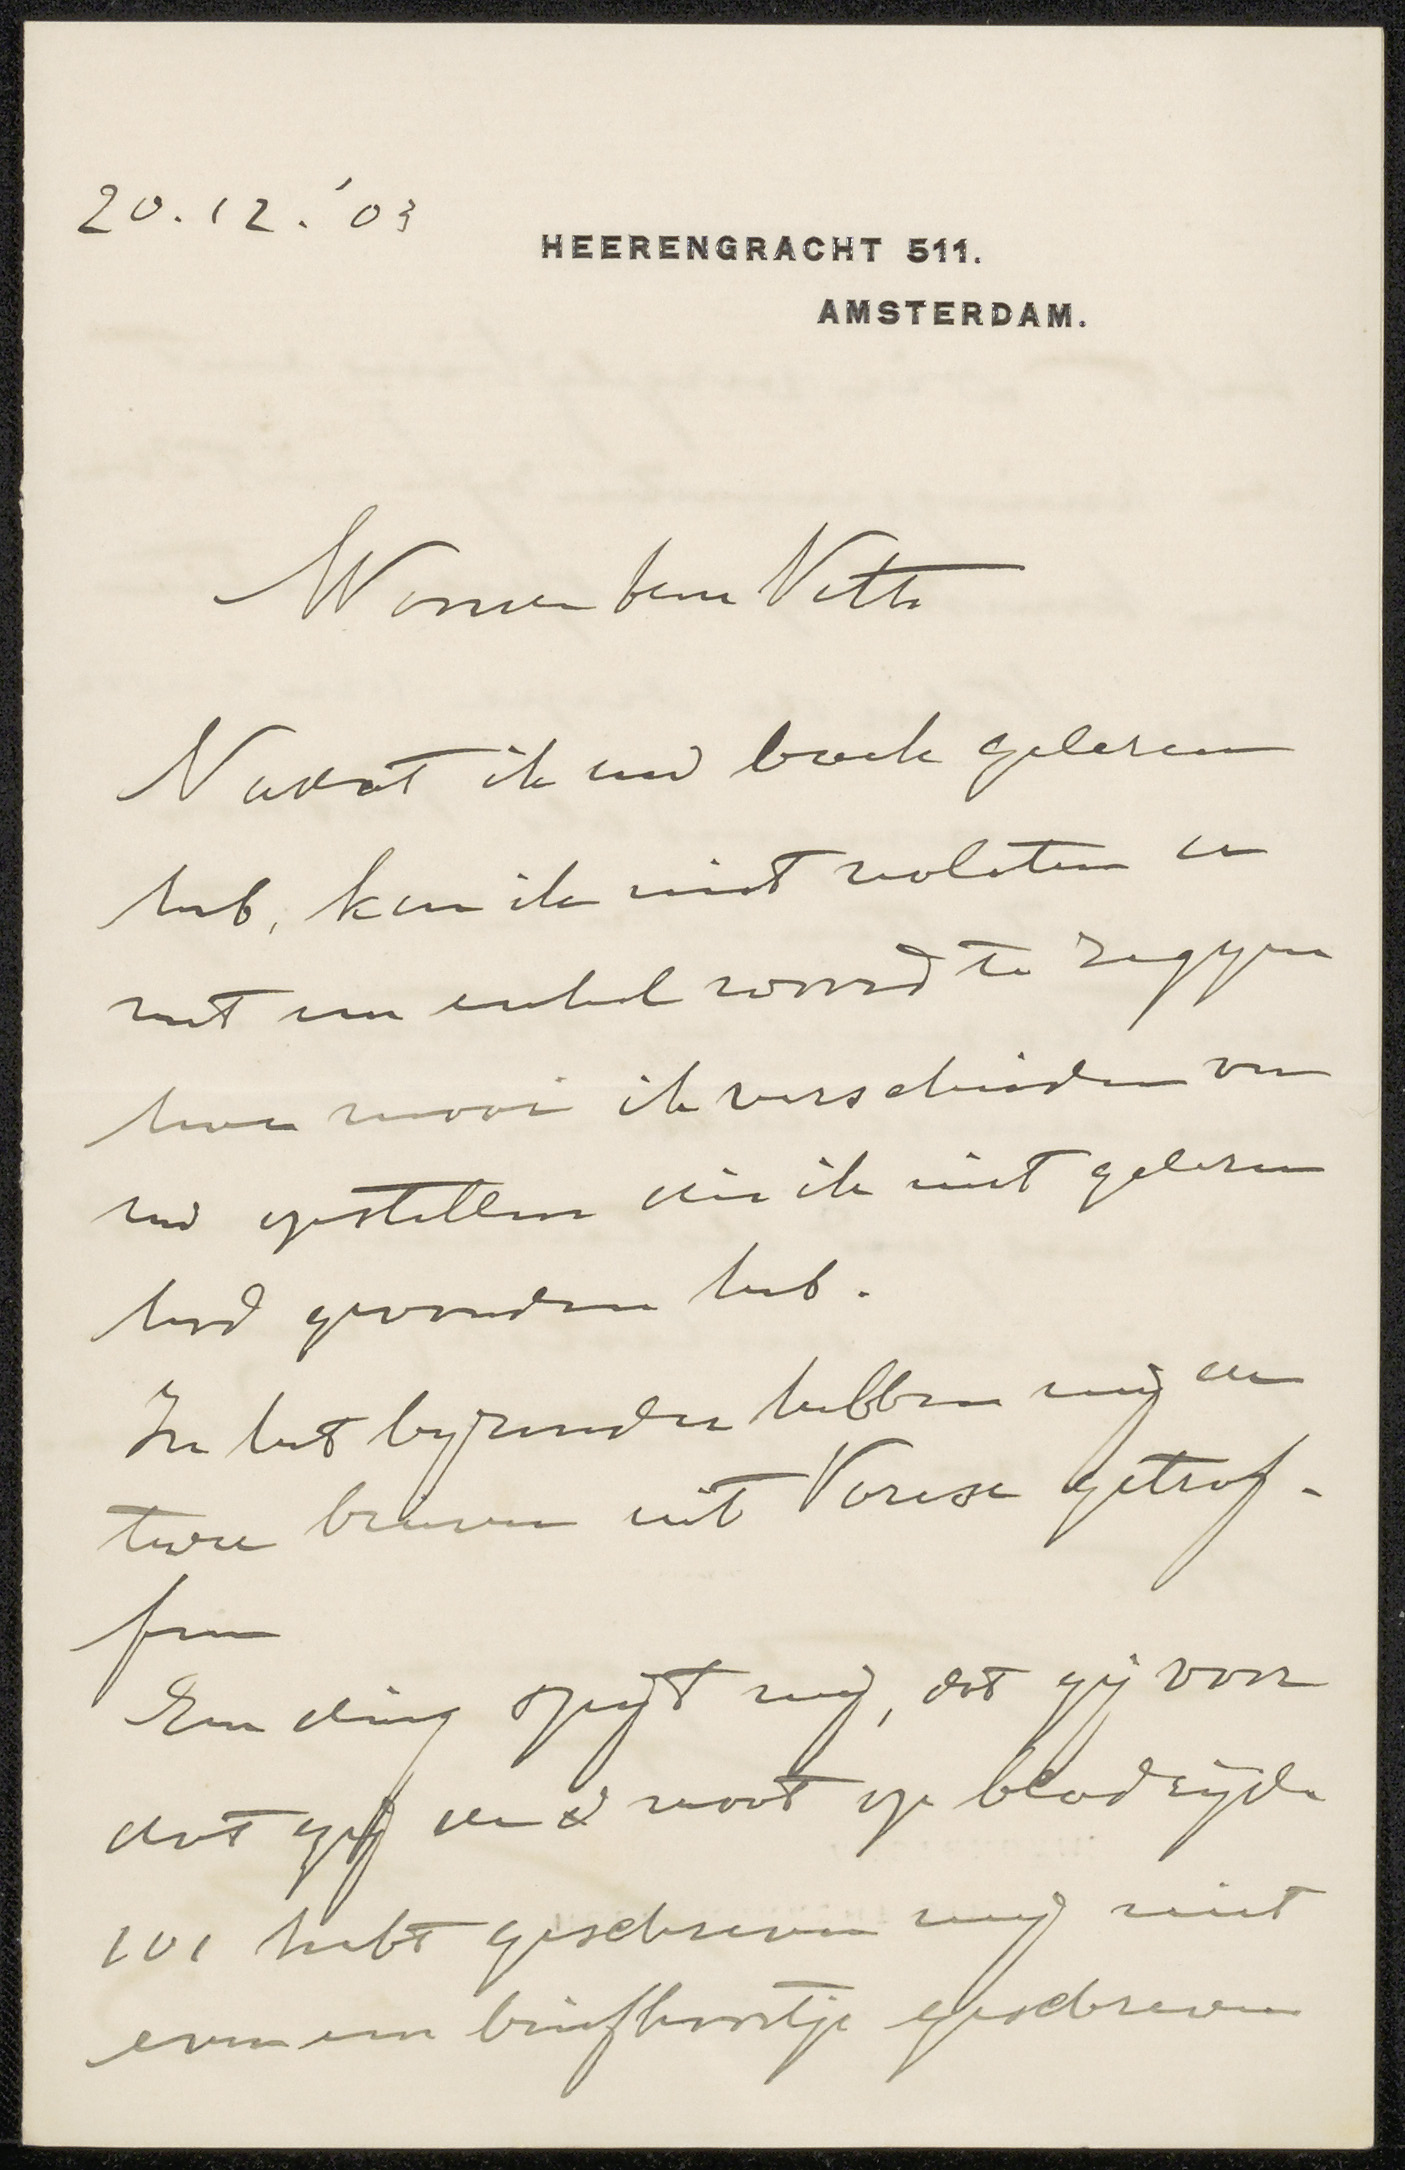 20.12.'03
HEERENGRACHT 511.
AMSTERDAM.
Waarde heer Veth
Nadat ik uw boek gelezen
heb, kan ik niet nalaten u
met een enkel woord te zeggen
hoe mooi ik verscheiden van
uw opstellen die ik niet gelezen
had gevonden heb.
In het byzonder hebben mij de
twee brieven uit Varese getrof-
fen
Een ding spijt mij, dat gij voor
dat gij de noot op bladzijde
101 hebt geschreven mij niet
even een briefkaartje geschreven